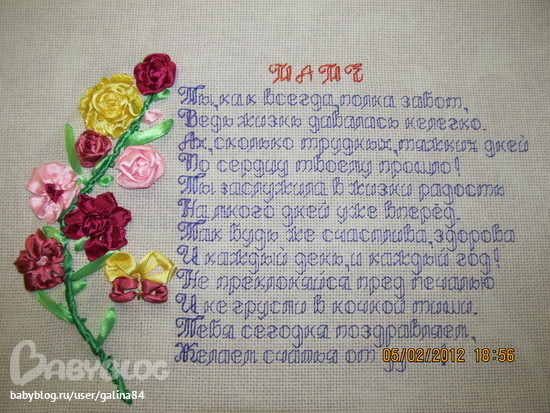 Ты, как всегда, полна забот,
Ведь жизнь давалась нелегко.
Ах, сколько трудных, тяжких дней
По сердцу твоему прошло!
Ты заслужила в жизни радость
На много дней уже вперёд.
Так будь же счастлива, здорова
И каждый день, и каждый год!
Не преклоняйся пред печалью
И не грусти в ночной тиши.
Тебя сегодня поздравляем,
Желаем счастья от
05/02/2012 18:56
BABYBLOG
babyblog.ru/user/galina84